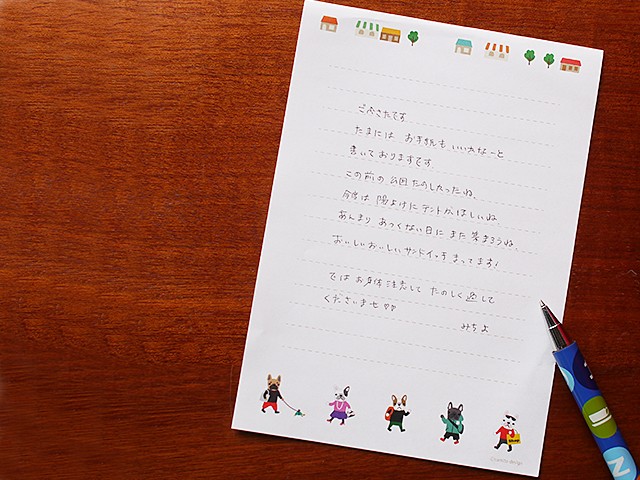 ごぶさたです
たまには お手紙も いいかなーと
書いておりますです
この前の 公園 たのしかったね、
今度は 陽よけに テントがほしいね
あんまり あつくない日に また 集まろうね、
おいしいおいしいサンドイッチ まってます!
では お身体 注意して たのしく 過して
くださいませ♡♡
みちよ
N